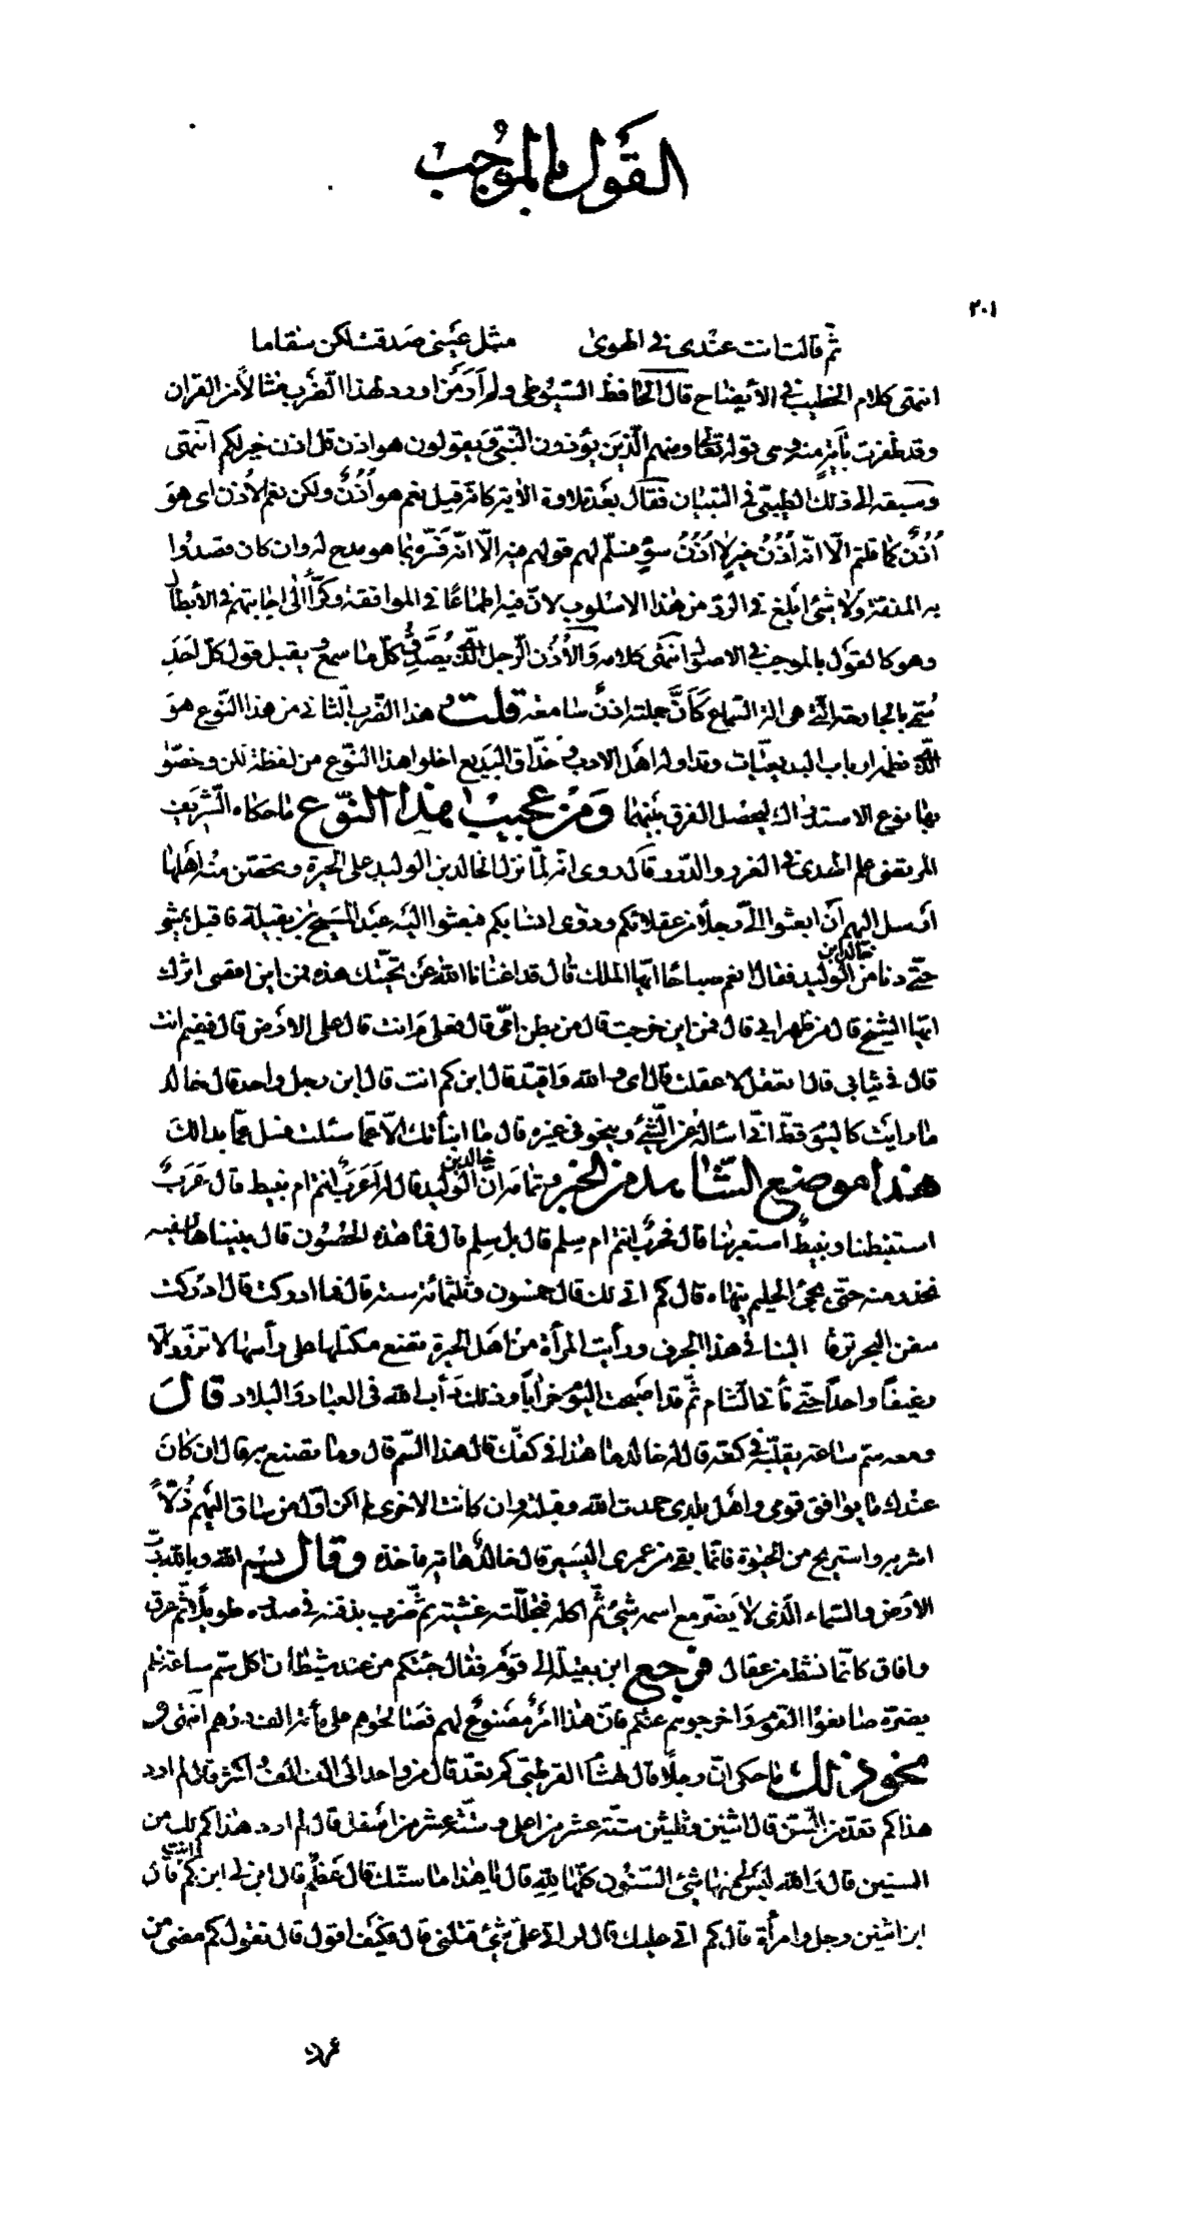 القول بالموجب
٢٠١
ثم قالت انت عندى فى الهوى مثل عينى صدقت لكن سقاما
انتهى كلام الخطيب فى الأيضاح قال الحافظ السيوطى ولم أر من اورد لهذا الضرب مثالا من القرآن
وقد ظفرت بآية منه وهى قوله تعالى ومنهم الذين يؤذون النبى ويقولون هو اذن قل اذن خير لكم انتهى
وسبقه الى ذلك الطيبى فى التبيان فقال بعد تلاوة الأية كانه قيل نعم هو أُذُنٌ ولكن نعم الأذن اى هو
أُذُنٌ كما قلتم الّا انه أُذُنُ خيرٍ لا أُذُنُ سوءٍ فسلّم لهم قولهم فيه الّا انه فسّره بما هو مدح له وان كان قصدوا
به المذمّة ولا شئ ابلغ فى الردّ من هذا الاسلوب لانّ فيه اطماعًا فى الموافقة وكرّاً الى اجابتهم فى الأبطال
وهو كالقول بالموجب فى الاصول انتهى كلامه والأذن الرجل الذى يُصدّق كلّ ما سمع ويقبل قول كلّ احدٍ
سُمّى بالجارحة الّتى هى الة السّماع كأنّ جملته اذنٌ سامعة قلت و هذا الضرب الثانى من هذا النّوع هو
الذى نظمه ارباب البديعيّات وتداوله اهل الادب و حذّاق البديع اخلوا هذا النّوع من لفظة لكن وخصّوا
بها نوع الاستدراك ليحصل الفرق بينهما ومن عجيب هذا النّوع ما حكاه الشريف
المرتضى علم الهدى فى الغرر والدّرر قال روى انه لمّا نزل خالد بن الوليد على الحيرة وتحصّن منه اهلها
ارسل اليهم أن ابعثوا الىّ رجلًا من عقلائكم وذوى انسابكم فبعثوا اليه عبد المسيح بن بقيلة فاقبل يمشى
حتّى دنا من خالد بن الوليد فقال انعم صباحًا ايّها الملك قال قد اغنانا الله عن تحيّتك هذه فمن اين اقصى اثرك
ايّها الشيخ قال من ظهر ابى قال فمن اين خرجت قال من بطن امّى قال فعلى م انت قال على الارض قال ففيم انت
قال فى ثيابى قال اتعقل لا عقلت قال اى والله واقيّد قال ابن كم انت قال ابن رجل واحد قال خالد
ما رايت كاليوم قطّ انّى اساله عن الشّئ وينحو فى غيره قال ما انبأتك الّا عمّا سئلت فسل عمّا بدا لك
هذا موضع الشّاهد من الخبر وتمامه انّ خالد بن الوليد قال له أعَرَبٌ انتم ام نبيط قال عَرَبٌ
استنبطنا ونبيطٌ استعربنا قال فحربٌ انتم ام سِلم قال بل سِلم قال فما هذه الحصُون قال بنيناها لسفيه
نحذر منه حتّى يجئ الحليم ينهاه قال كم اتى لك قال خمسون وثلثمائة سنة قال فما ادركت قال ادركت
سفن البحر ترفأ الينا فى هذا الجرف ورأيت المرأة من اهل الحيرة تضع مكتلها على رأسها لا تزوّد الّا
رغيفاً واحداً حتّى تأتى الشام ثمّ قد اصبحت اليوم خراباً وذلك دأب الله فى العباد والبلاد قال
ومعه سمّ ساعة يقلّبه فى كفّه قال له خالد ما هذا فى كفّك قال هذا السّم قال وما تصنع به قال ان كان
عندك ما يوافق قومى واهل بلدى حمدت الله وقبلته وان كانت الاخرى لم اكن اوّل من ساق اليهم ذُلّاً
اشربه واستريح من الحيوة فانّما بقى من عمرى اليسير قال خالد هاته فاخذه وقال بسم الله وبالله ربّ
الأرض والسّماء الّذى لا يضرّ مع اسمه شئ ثمّ اكله فتجلّلته غشية ثم ضرب بذقنه فى صدره طويلًا ثم عرق
وافاق كانّما نشط من عقال فرجع ابن بقيلة الى قومه فقال جئتكم من عند شيطان اكل سمّ ساعة فلم
يضرّه صانعوا القوم واخرجوهم عنكم فانّ هذا امرٌ مصنوعٌ لهم فصالحوهم على مأئة الف درهم انتهى و
نحو ذلك ما حكى انّ رجلًا قال لهشام القرطبى كم تعدّ قال من واحد الى الف الف و اكثر قال لم ارد
هذا كم تعدّ من السّن قال اثنين وثلثين ستّة عشر من اعلى وستّة عشر من اسفل قال لم ارد هذا كم لك من
السنين قال والله ليس لى منها شئ السّنُون كلّها لله قال يا هذا ما سنّك قال عَظمٌ قال ابن لى ابن كم انت قال
ابن اثنين رجل وامرأة قال كم اتى عليك قال لو اتى علىّ شئ قتلنى قال فكيف اقول قال تقول كم مضى من
عمرك